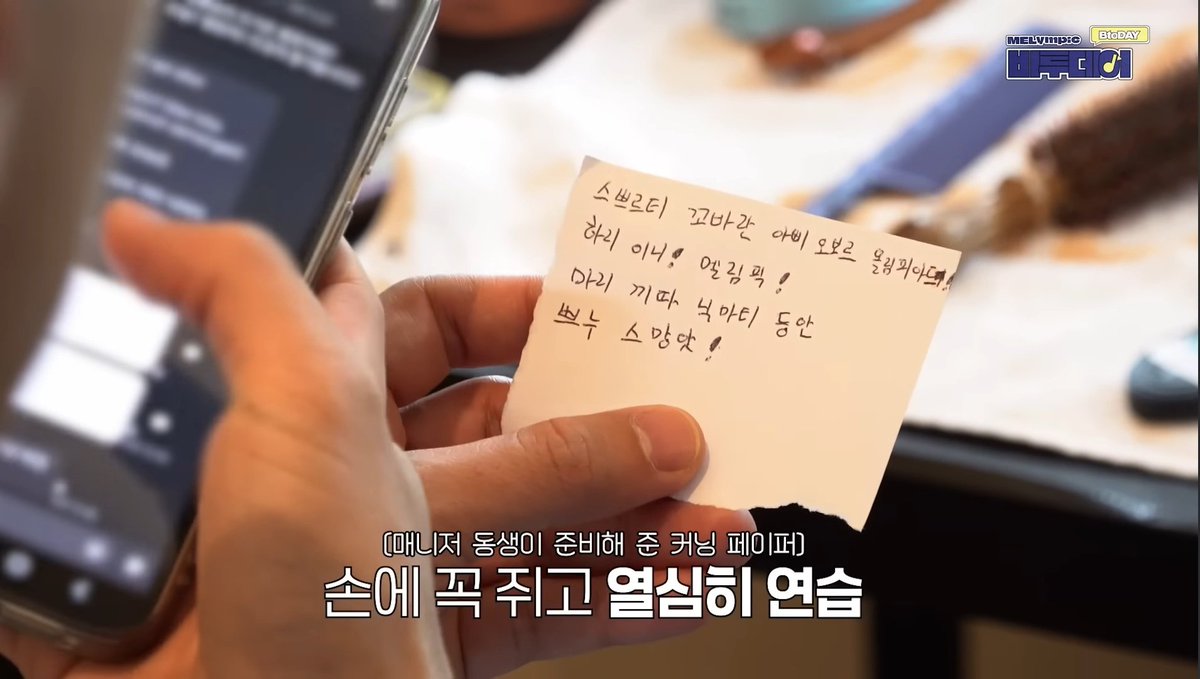 MELympic
BtoDAY
비투데이
스쁘르티 꼬바란 아삐 오보르 올림피아드!
하리 이니! 멜림픽!
마리 끼따 닉마티 동안
쁘누 스망앗!
(매니저 동생이 준비해 준 커닝 페이퍼)
손에 꼭 쥐고 열심히 연습